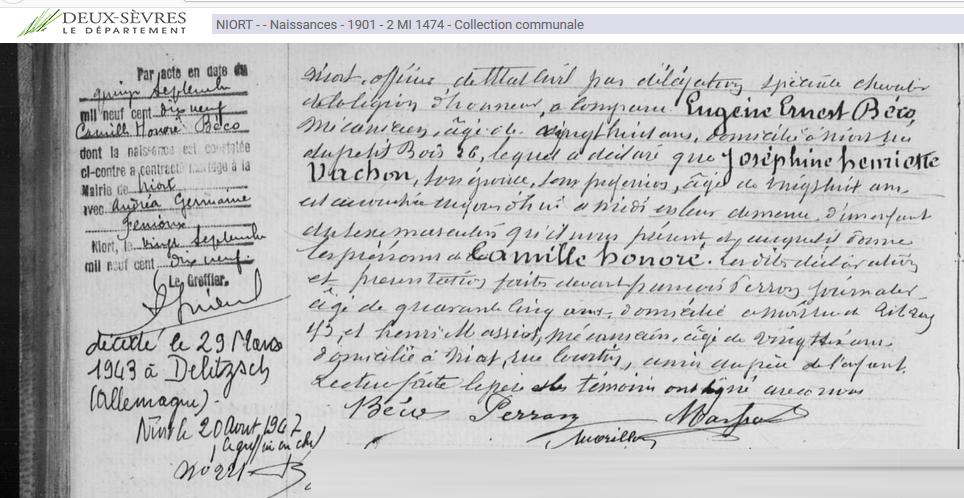 DEUX-SÈVRES
LE DÉPARTEMENT
NIORT - - Naissances - 1901 - 2 MI 1474 - Collection communale
Par acte en date du
quinze Septembre
mil neuf cent dix neuf
Camille Honoré Béco
dont la naissance est constatée
ci-contre a contracté mariage à la
Mairie de Niort
avec Andréa Germaine
Niort, le vingt Septembre
mil neuf cent dix neuf
Le Greffier,
décédé le 29 Mars
1943 à Delitzsch
(Allemagne).
Niort le 20 Aout 1947
Niort, officier de l'Etat Civil par délégation spéciale chevalier
de la légion d'honneur, a comparu Eugène Ernest Béco,
mécanicien, âgé de vingt huit ans, domicilié à Niort rue
du petit Bois 26, lequel a déclaré que Joséphine henriette
Vachon, son épouse, sans profession, âgée de vingt huit ans
est accouchée aujourd'hui à midi en leur demeure, d'un enfant
du sexe masculin qu'il nous présente et auquel il donne
les prénoms de Camille honoré. Les dites déclaration
et présentation faites devant françois Perron journalier
âgé de quarante cinq ans, domicilié à Niort rue de
45, et henri Massiot, mécanicien, âgé de vingt ans
domicilié à Niort, rue, amis du père de l'enfant,
Lecture faite le père et les témoins ont signé avec nous
Béco Perron